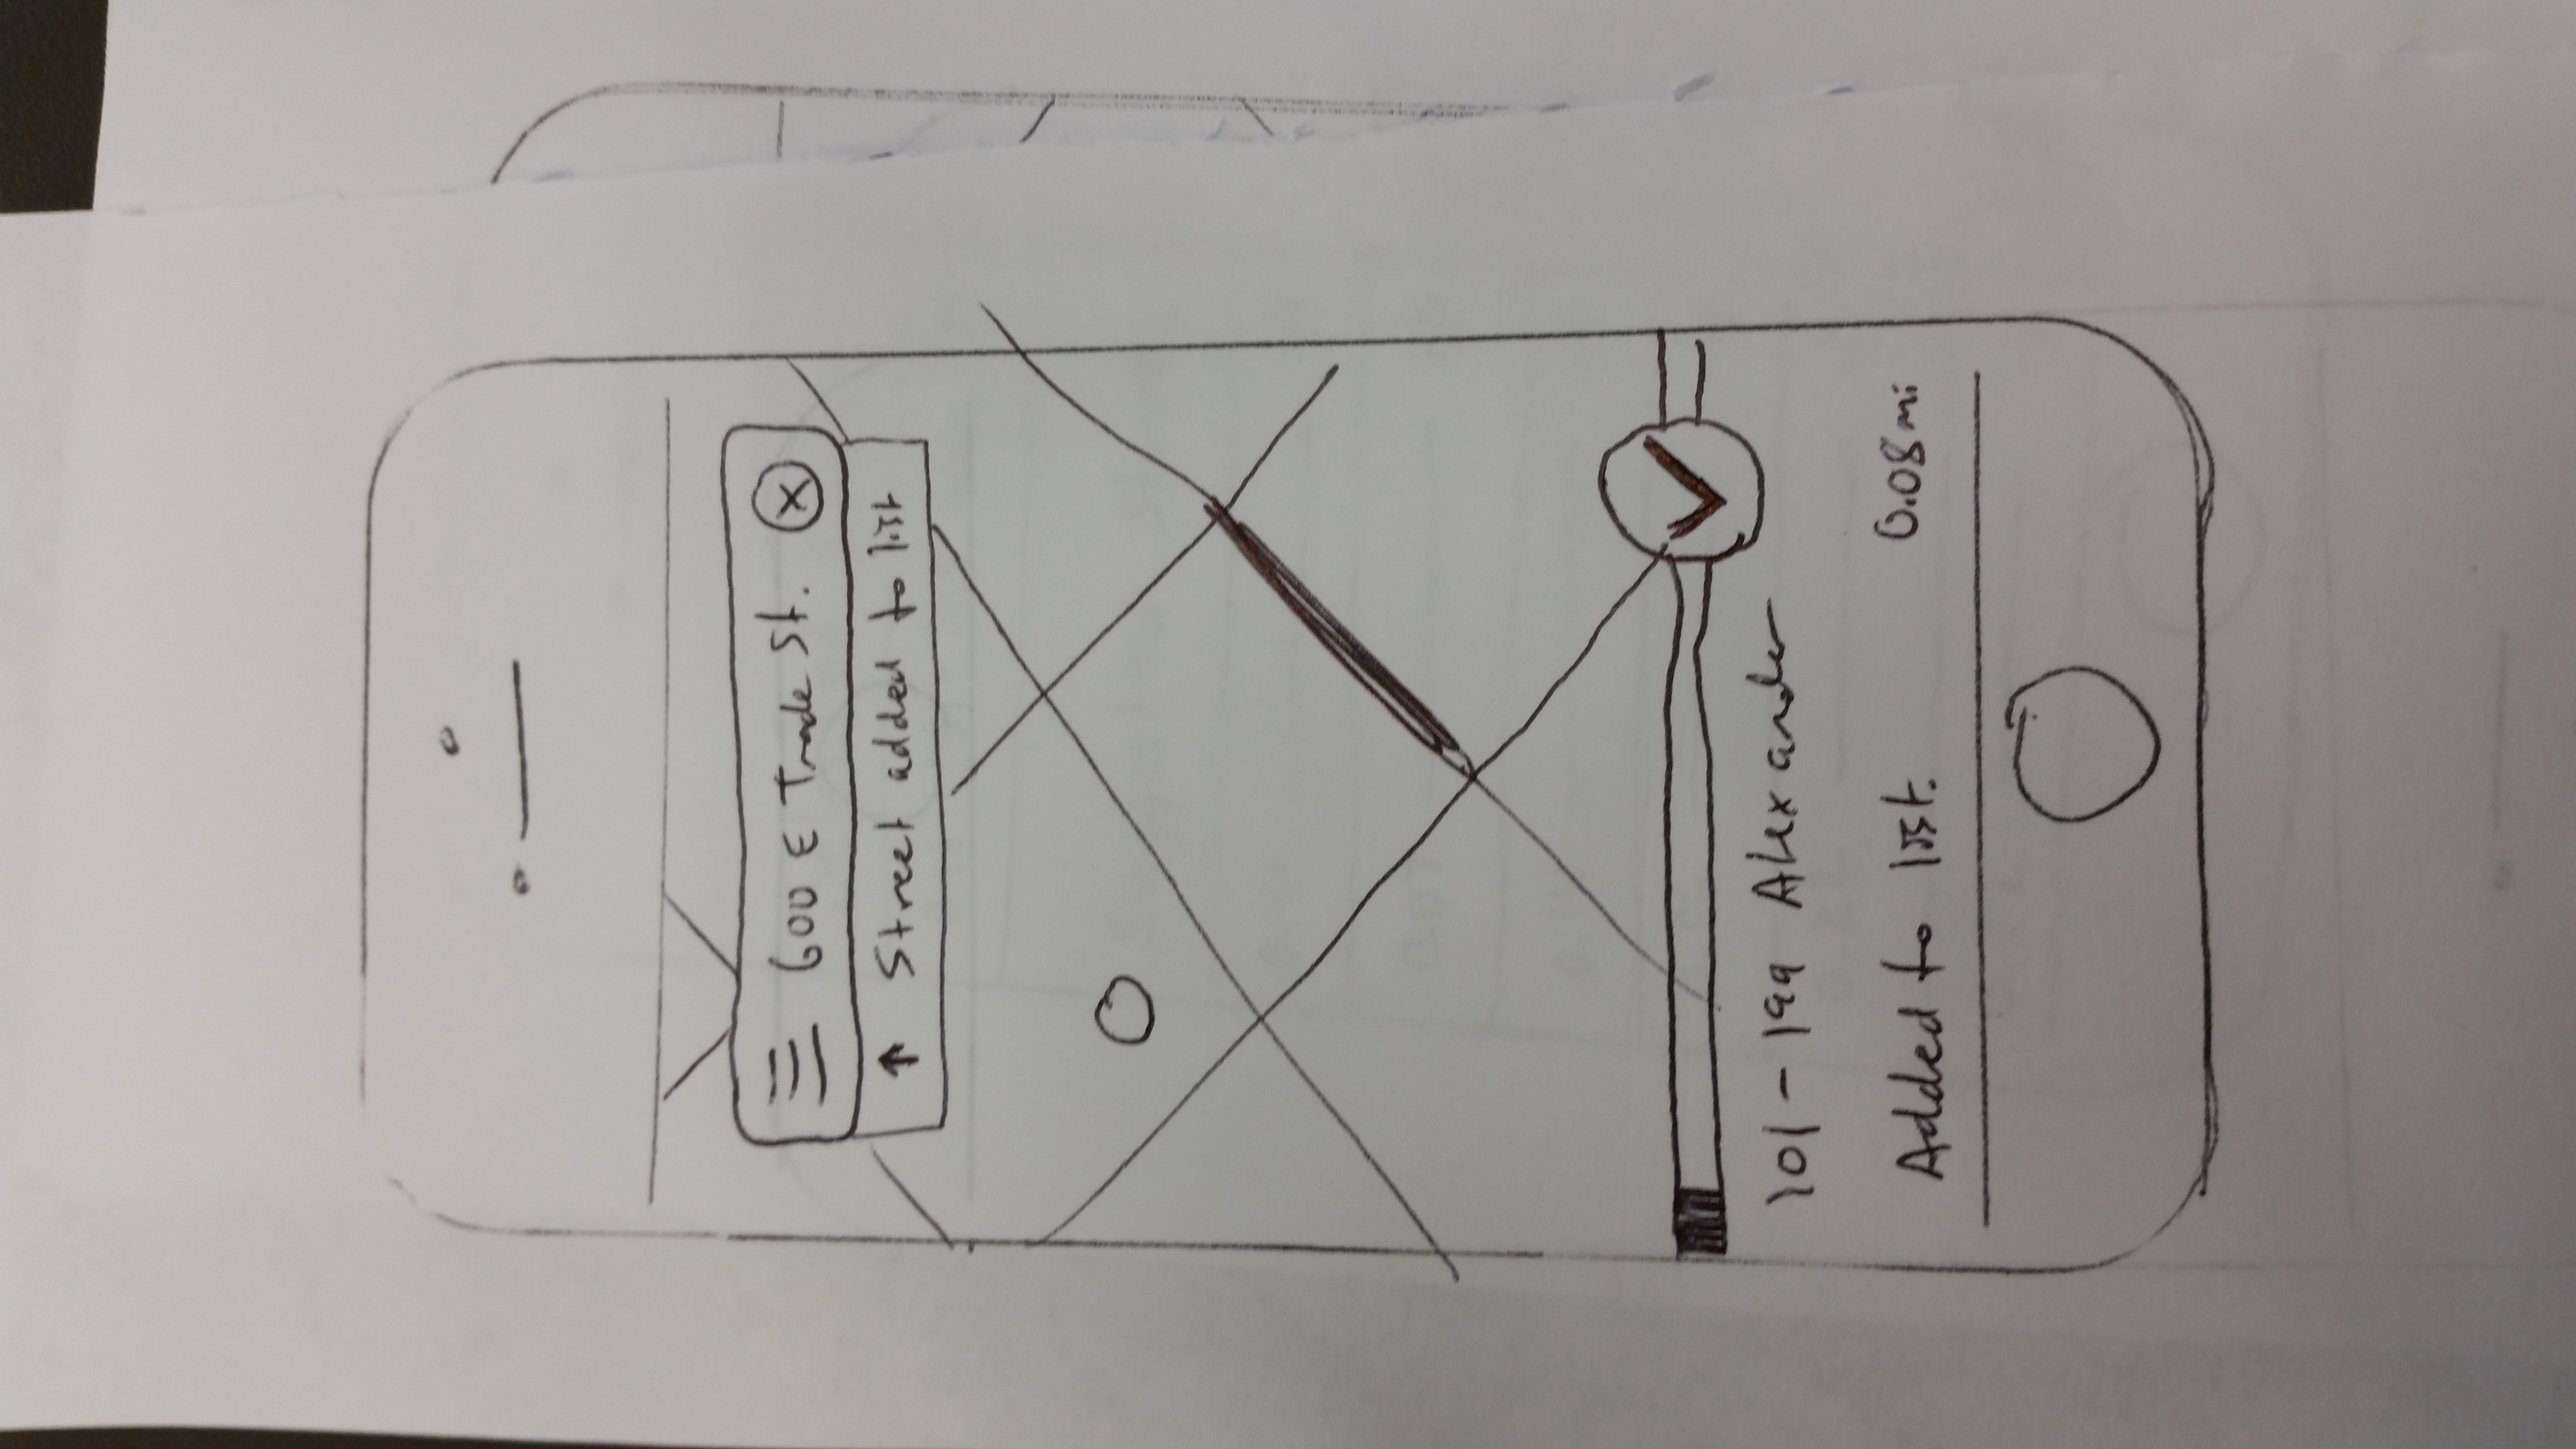 600 E Trade St.
Street added to list
101-199 Alexander
Added to list.
0.08mi